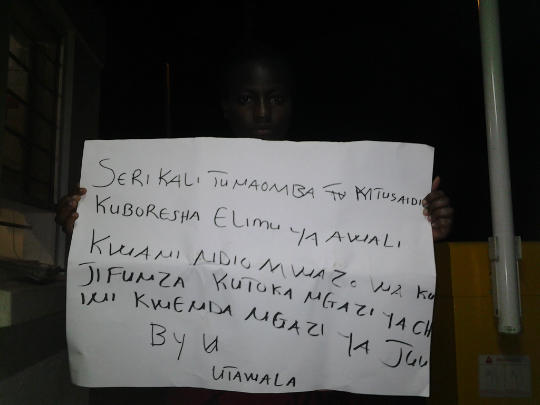 SERIKALI TUNAOMBA MTUSAIDIE
KUBORESHA ELIMU YA AWALI
KWANI NDIO MWAZO WA KU
JIFUNZA KUTOKA NGAZI YA CH
INI KWENDA NGAZI YA JUU
BY U
UTAWALA